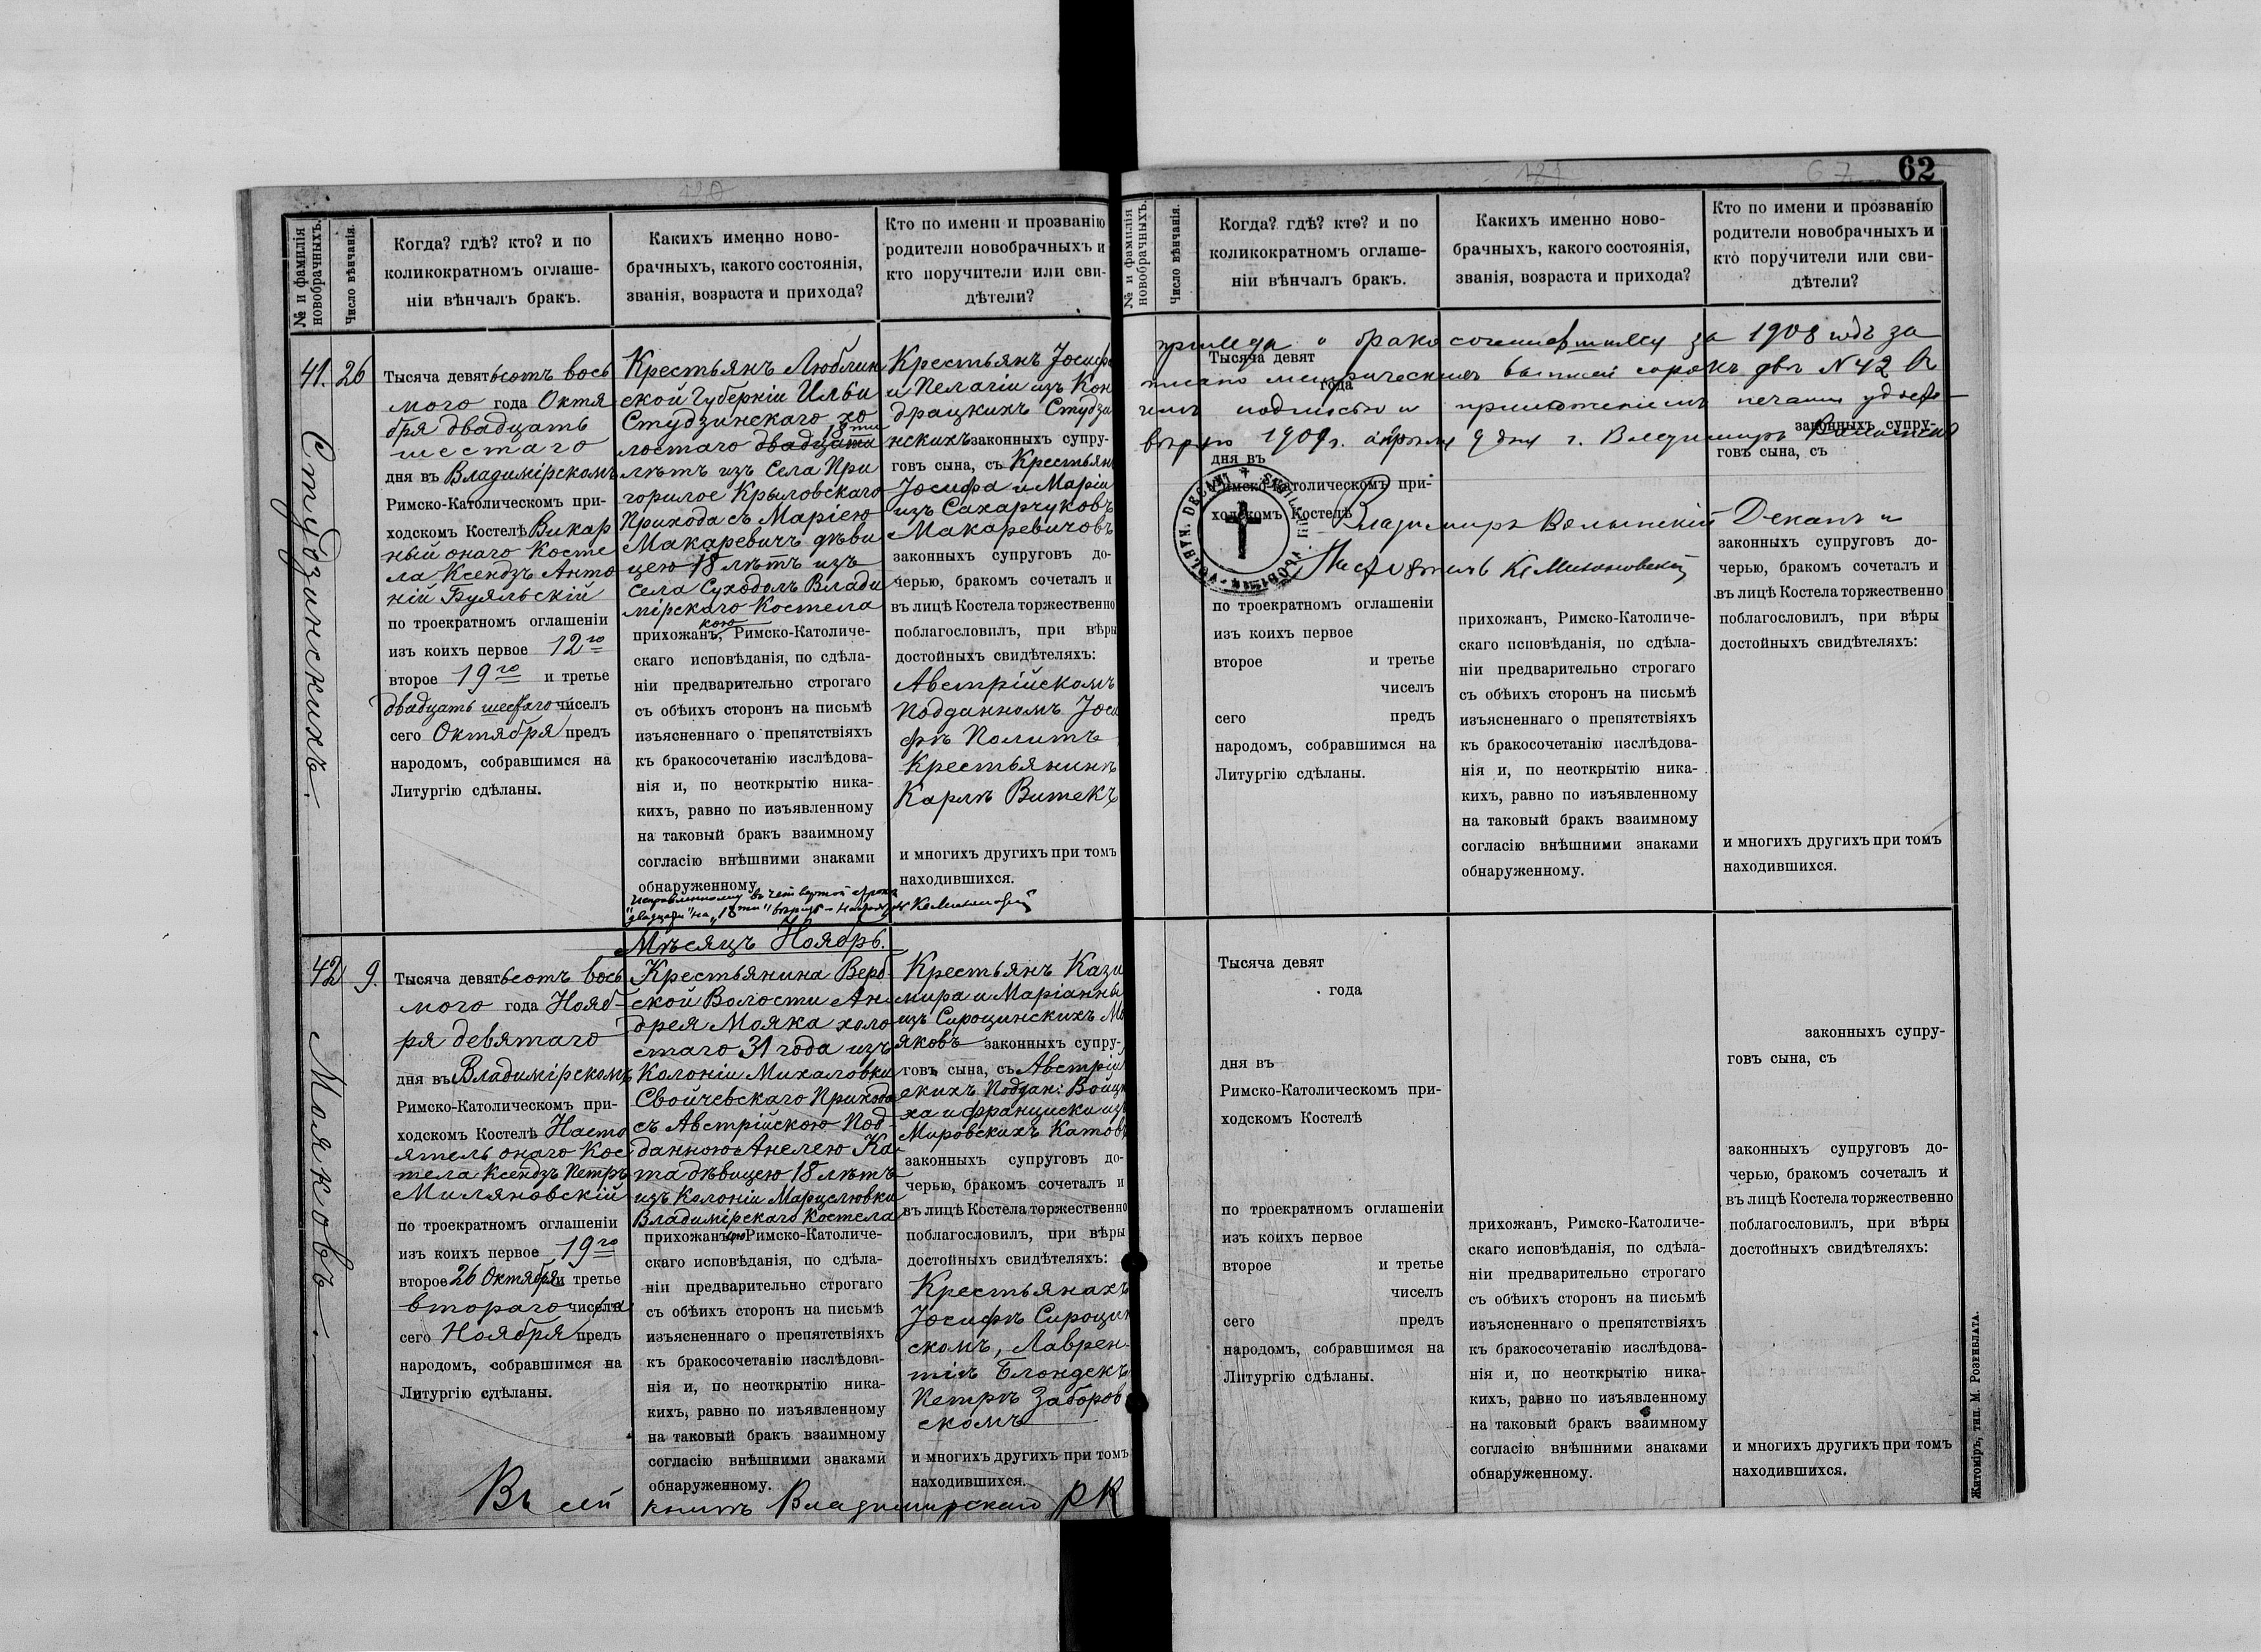 120
№ и фамилія новобрачныхъ.
Число вѣнчанія.
Когда? гдѣ? кто? и по
коликократномъ оглаше-
ніи вѣнчалъ бракъ.
Какихъ именно ново-
брачныхъ, какого состоянія,
званія, возраста и прихода?
Кто по имени и прозванію
родители новобрачныхъ и
кто поручители или сви-
дѣтели?
41.
26
Студзинскихъ.
Тысяча девятьсотъ вось
мого года Октя
бря двадцать
шестаго
дня въ Владимірскомъ
Римско-Католическомъ при-
ходскомъ Костелѣ Викар
ный онаго Косте
ла Ксендзъ Анто
ній Буяльскій
по троекратномъ оглашеніи
изъ коихъ первое 12го
второе 19го и третье
двадцать шестаго чиселъ
сего Октября предъ
народомъ, собравшимся на
Литургію сдѣланы.
Крестьянъ Люблин
ской Губерніи Ильи
Студзинскаго хо
18ти
лостаго двадцати
лѣтъ изъ Села При
горилое Крыловскаго
Прихода съ Маріею
Макаревичъ дѣви
цею 18 лѣтъ изъ
Села Суходолъ Влади
мірскаго Костела
кою
прихожанъ, Римско-Католиче-
скаго исповѣданія, по сдѣла-
ніи предварительно строгаго
съ обѣихъ сторонъ на письмѣ
изъясненнаго о препятствіяхъ
къ бракосочетанію изслѣдова-
нія и, по неоткрытію ника-
кихъ, равно по изъявленному
на таковый бракъ взаимному
согласію внѣшними знаками
обнаруженному.
Исправленному въ четвертой строкѣ
"двадцати" на "18ти" вѣрить
Крестьянъ Іосифа
и Пелагіи изъ Кон
драцкихъ Студзи
нскихъ законныхъ супру-
говъ сына, съ Крестьян
Іосифа и Маріи
изъ Сахарчуковъ
Макаревичовъ
законныхъ супруговъ до-
черью, бракомъ сочеталъ и
въ лицѣ Костела торжественно
поблагословилъ, при вѣры
достойныхъ свидѣтеляхъ:
Австрійскомъ
Подданномъ Іоси
фѣ Политъ
Крестьянинѣ
Карлѣ Витекъ
и многихъ другихъ при томъ
находившихся.
Мѣсяцъ Ноябрь.
42
9.
Мояковъ.
Тысяча девятьсотъ вось
мого года Нояб-
ря девятаго
дня въ Владимірскомъ
Римско-Католическомъ при-
ходскомъ Костелѣ Насто
ятель онаго Кос
тела Ксендзъ Петръ
Миляновскій
по троекратномъ оглашеніи
изъ коихъ первое 19го
второе 26 Октября и третье
втораго числа
сего Ноября предъ
народомъ, собравшимся на
Литургію сдѣланы.
Крестьянина Верб-
ской Волости Ан-
дрея Мояка холо
стаго 31 года изъ
Колоніи Михаловки
Свойчевскаго Прихода
съ Австрійскою Под-
данною Анелею Ка-
та дѣвицею 18 лѣтъ
изъ Колоніи Марцелювки
Владимірскаго Костела
прихожанъ, Римско-Католиче-
скаго исповѣданія, по сдѣла-
ніи предварительно строгаго
съ обѣихъ сторонъ на письмѣ
изъясненнаго о препятствіяхъ
къ бракосочетанію изслѣдова-
нія и, по неоткрытію ника-
кихъ, равно по изъявленному
на таковый бракъ взаимному
согласію внѣшними знаками
обнаруженному.
Крестьянъ Кази
мира и Маріанны
изъ Сироцинскихъ Мо
яковъ законныхъ супру-
говъ сына, съ Австрій
скихъ Поддан: Войцѣ
ха и Франциски изъ
Мировскихъ Катовъ
законныхъ супруговъ до-
черью, бракомъ сочеталъ и
въ лицѣ Костела торжественно
поблагословилъ, при вѣры
достойныхъ свидѣтеляхъ:
Крестьянахъ
Іосифѣ Сироцин
скомъ, Лаврен-
тіѣ Блондекъ
Петрѣ Заборов
скомъ
и многихъ другихъ при томъ
находившихся.
Въ сей книгѣ Владимирскаго РК
121
67
62
№ и фамилія новобрачныхъ.
Число вѣнчанія.
Когда? гдѣ? кто? и по
коликократномъ оглаше-
ніи вѣнчалъ бракъ.
Какихъ именно ново-
брачныхъ, какого состоянія,
званія, возраста и прихода?
Кто по имени и прозванію
родители новобрачныхъ и
кто поручители или сви-
дѣтели?
прихода о бракосочетавшихся за 1908 годъ за
писано метрическихъ сорокъ два N 42
подписью и приложеніемъ печати удосто-
вѣряю 1909 г. апрѣля 9 дня г. Владимиръ Волынскъ
Владимиръ Волынскій Деканъ и
Настоятель К. Миляновскій
Тысяча девят
года
законныхъ супру-
говъ сына, съ
дня въ
Римско-Католическомъ при-
ходскомъ Костелѣ
законныхъ супруговъ до-
черью, бракомъ сочеталъ и
въ лицѣ Костела торжественно
поблагословилъ, при вѣры
достойныхъ свидѣтеляхъ:
по троекратномъ оглашеніи
изъ коихъ первое
второе и третье
чиселъ
сего предъ
народомъ, собравшимся на
Литургію сдѣланы.
прихожанъ, Римско-Католиче-
скаго исповѣданія, по сдѣла-
ніи предварительно строгаго
съ обѣихъ сторонъ на письмѣ
изъясненнаго о препятствіяхъ
къ бракосочетанію изслѣдова-
нія и, по неоткрытію ника-
кихъ, равно по изъявленному
на таковый бракъ взаимному
согласію внѣшними знаками
обнаруженному.
и многихъ другихъ при томъ
находившихся.
Тысяча девят
года
дня въ
Римско-Католическомъ при-
ходскомъ Костелѣ
по троекратномъ оглашеніи
изъ коихъ первое
второе и третье
чиселъ
сего предъ
народомъ, собравшимся на
Литургію сдѣланы.
прихожанъ, Римско-Католиче-
скаго исповѣданія, по сдѣла-
ніи предварительно строгаго
съ обѣихъ сторонъ на письмѣ
изъясненнаго о препятствіяхъ
къ бракосочетанію изслѣдова-
нія и, по неоткрытію ника-
кихъ, равно по изъявленному
на таковый бракъ взаимному
согласію внѣшними знаками
обнаруженному.
законныхъ супру-
говъ сына, съ
законныхъ супруговъ до-
черью, бракомъ сочеталъ и
въ лицѣ Костела торжественно
поблагословилъ, при вѣры
достойныхъ свидѣтеляхъ:
и многихъ другихъ при томъ
находившихся.
Житоміръ, тип. М. Розенблата.